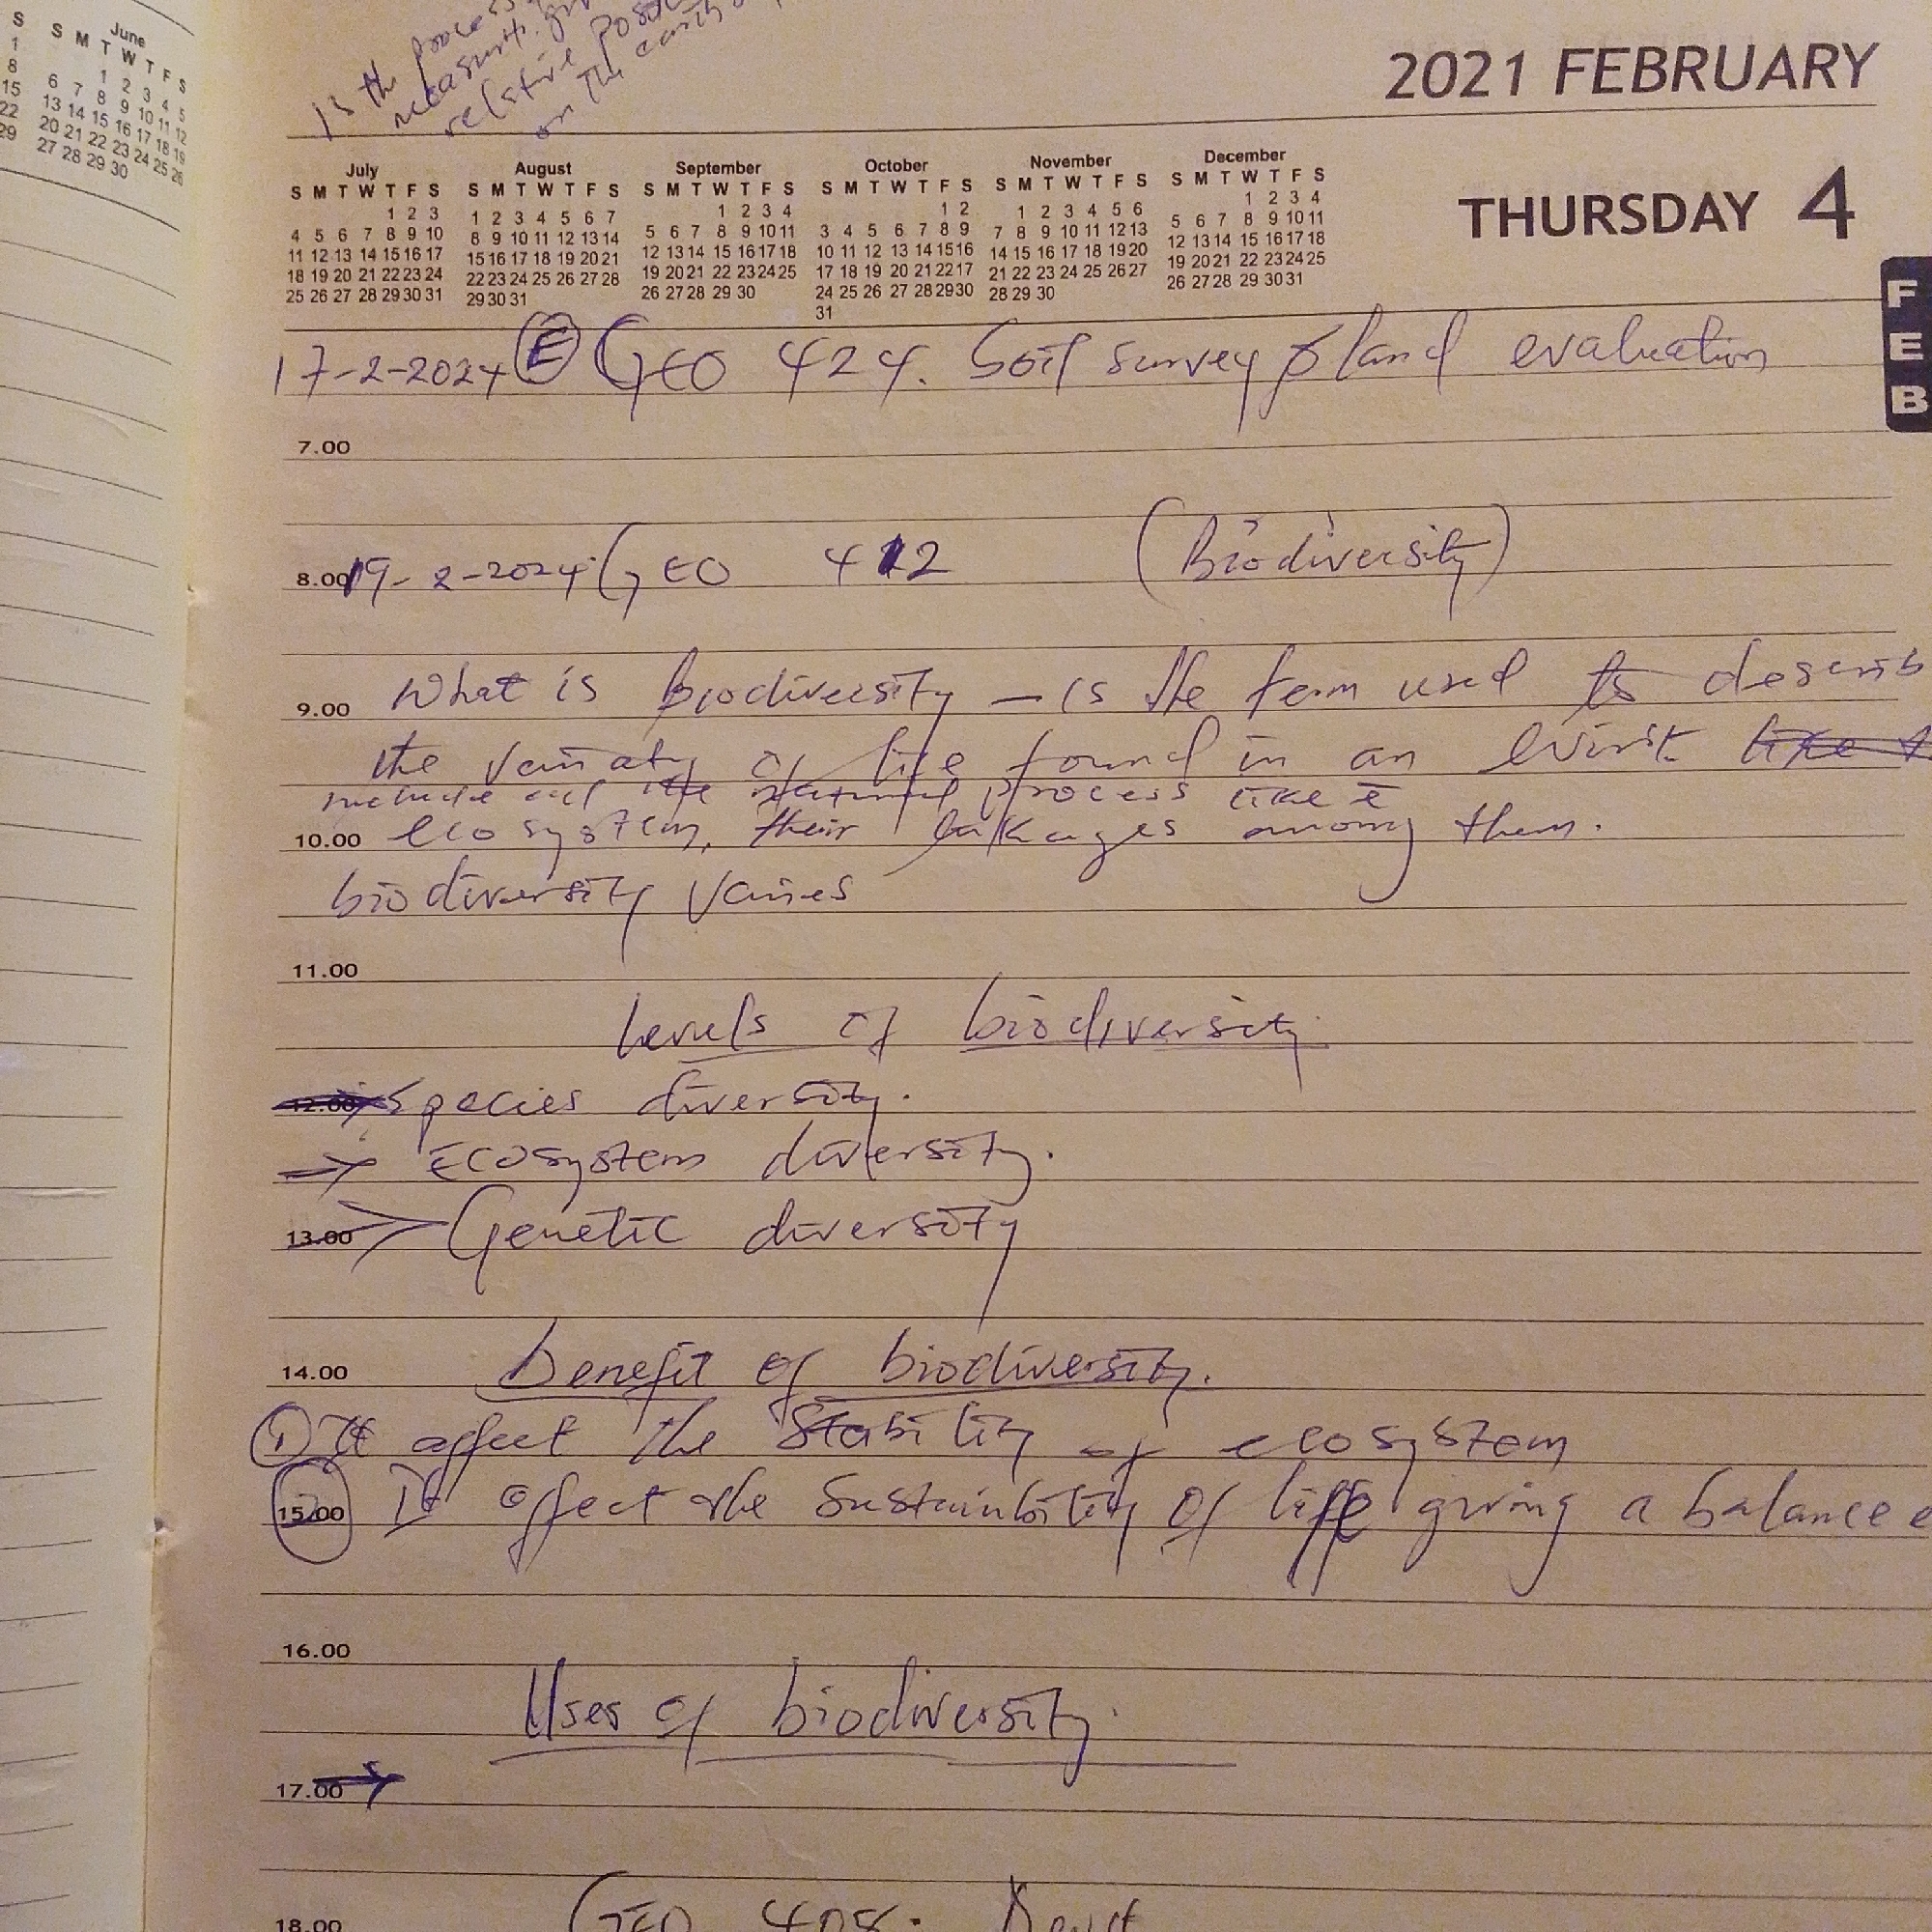 S
1
8
15
22
29
June
S M T W T F S
1 2 3 4 5
6 7 8 9 10 11 12
13 14 15 16 17 18 19
20 21 22 23 24 25 26
27 28 29 30
is the process
measurt.
relative
on the earth
2021 FEBRUARY
THURSDAY 4
July
S M T W T F S
1 2 3
4 5 6 7 8 9 10
11 12 13 14 15 16 17
18 19 20 21 22 23 24
25 26 27 28 29 30 31
August
S M T W T F S
1 2 3 4 5 6 7
8 9 10 11 12 13 14
15 16 17 18 19 20 21
22 23 24 25 26 27 28
29 30 31
September
S M T W T F S
1 2 3 4
5 6 7 8 9 10 11
12 13 14 15 16 17 18
19 20 21 22 23 24 25
26 27 28 29 30
October
S M T W T F S
1 2
3 4 5 6 7 8 9
10 11 12 13 14 15 16
17 18 19 20 21 22 17
24 25 26 27 28 29 30
31
November
S M T W T F S
1 2 3 4 5 6
7 8 9 10 11 12 13
14 15 16 17 18 19 20
21 22 23 24 25 26 27
28 29 30
December
S M T W T F S
1 2 3 4
5 6 7 8 9 10 11
12 13 14 15 16 17 18
19 20 21 22 23 24 25
26 27 28 29 30 31
FEB
17-2-2024 E GEO 424. Soil survey & land evaluation
7.00
8.00 19-2-2024 GEO 412 (Biodiversity)
9.00 What is biodiversity - is the term used to describ
the vairaty of life found in an like
include all the natural process like
10.00 ecosystem, their among them.
biodiversity varies
11.00
levels of biodiversity
12.00 Species diversity.
→ Ecosystem diversity.
13.00 Genetic diversity
14.00 benefit of biodiversity.
① It affect the Stability of ecosystem
15.00 It affect the Sustainbility of life giving a balance e
16.00
Uses of biodiversity.
17.00 →
18.00 GEO 408.